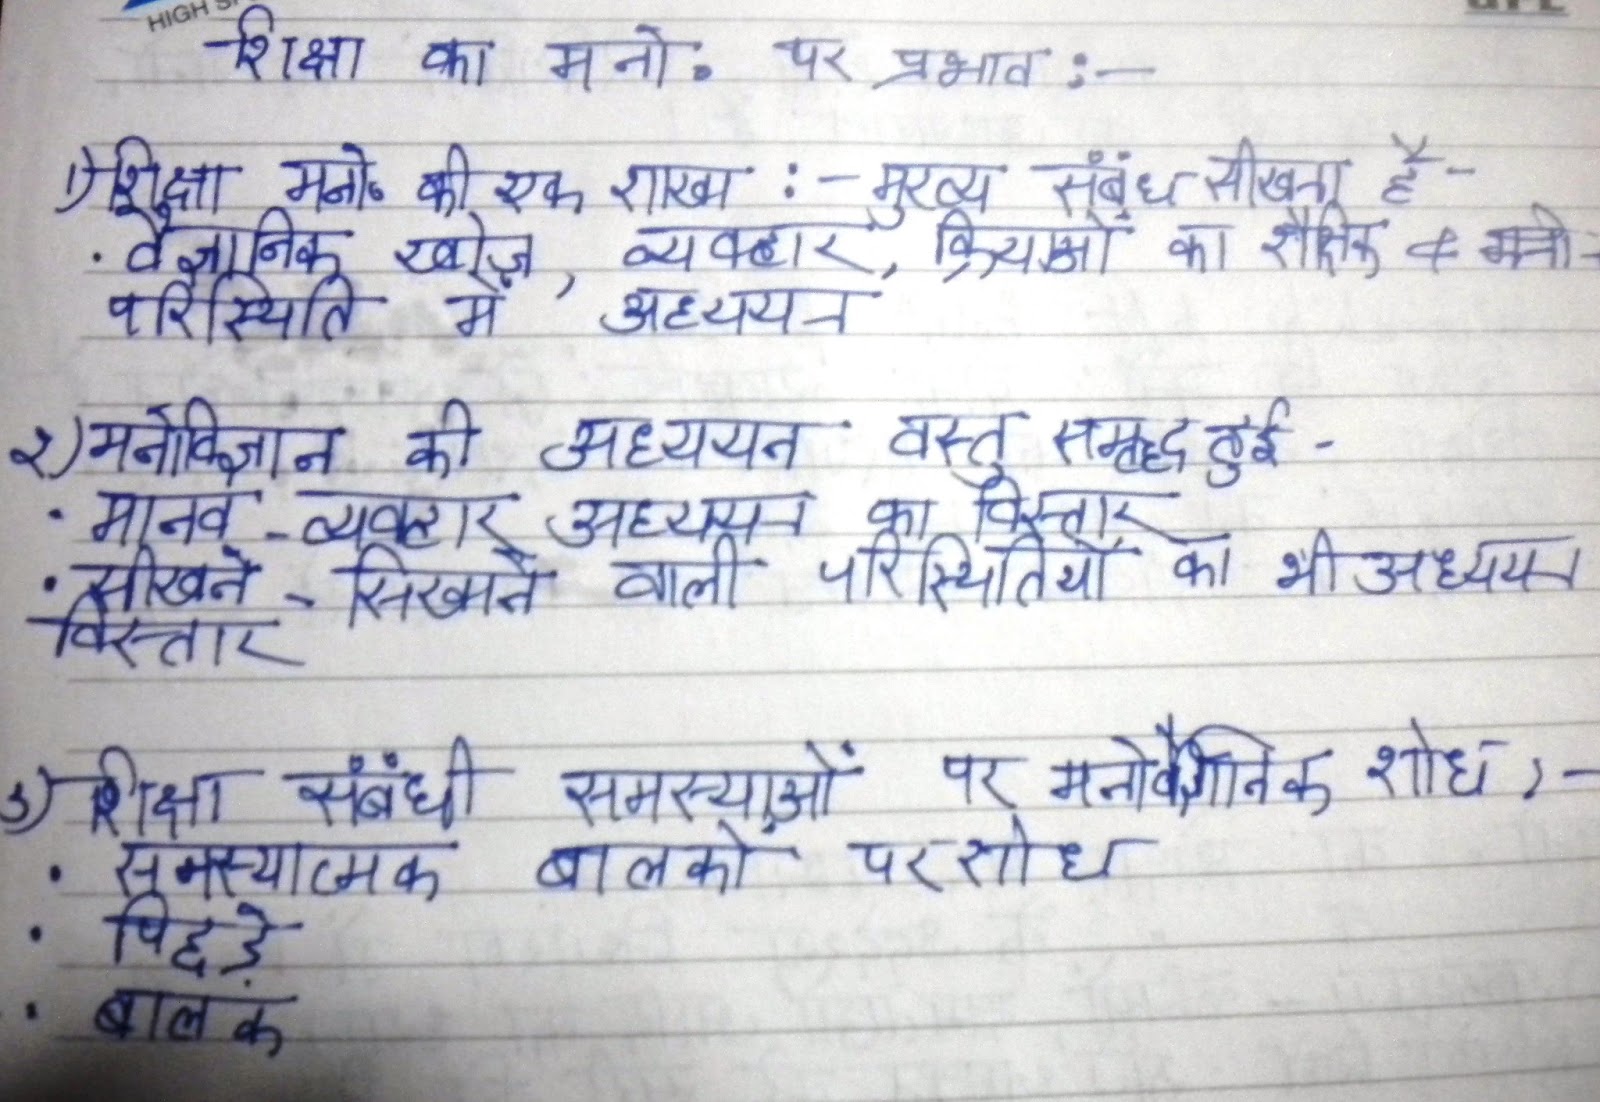 HIGH
शिक्षा का मनो० पर प्रभाव :—
1) शिक्षा मनो० की एक शाखा :- मुख्य संबंध सीखना है -
• वैज्ञानिक खोज, व्यवहार, क्रियाओं का शैक्षिक & मनो-
परिस्थिति में अध्ययन
२) मनोविज्ञान की अध्ययन वस्तु समृद्ध हुई -
• मानव - व्यवहार अध्ययन का विस्तार
• सीखने - सिखाने वाली परिस्थितियों का भी अध्ययन
विस्तार
3) शिक्षा संबंधी समस्याओं पर मनोवैज्ञानिक शोध :-
• समस्यात्मक बालकों पर शोध
• पिछड़े
• बालक